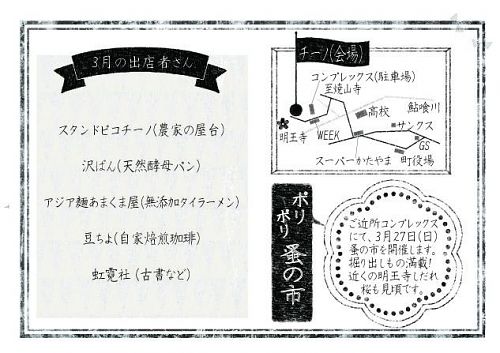 3月の出店者さん
スタンドピコチーノ(農家の屋台)
沢ぱん(天然酵母パン)
アジア麺あまくま屋(無添加タイラーメン)
豆ちよ(自家焙煎珈琲)
虹霓社(古書など)
チーノ(会場)
コンプレックス(駐車場)
至焼山寺
高校
鮎喰川
サンクス
明王寺
WEEK
GS
スーパーかたやま
町役場
ボリ
ボリ
蚤の市
ご近所コンプレックス
にて、3月27日(日)
蚤の市を開催します。
掘り出しもの満載!
近くの明王寺しだれ
桜も見頃です。